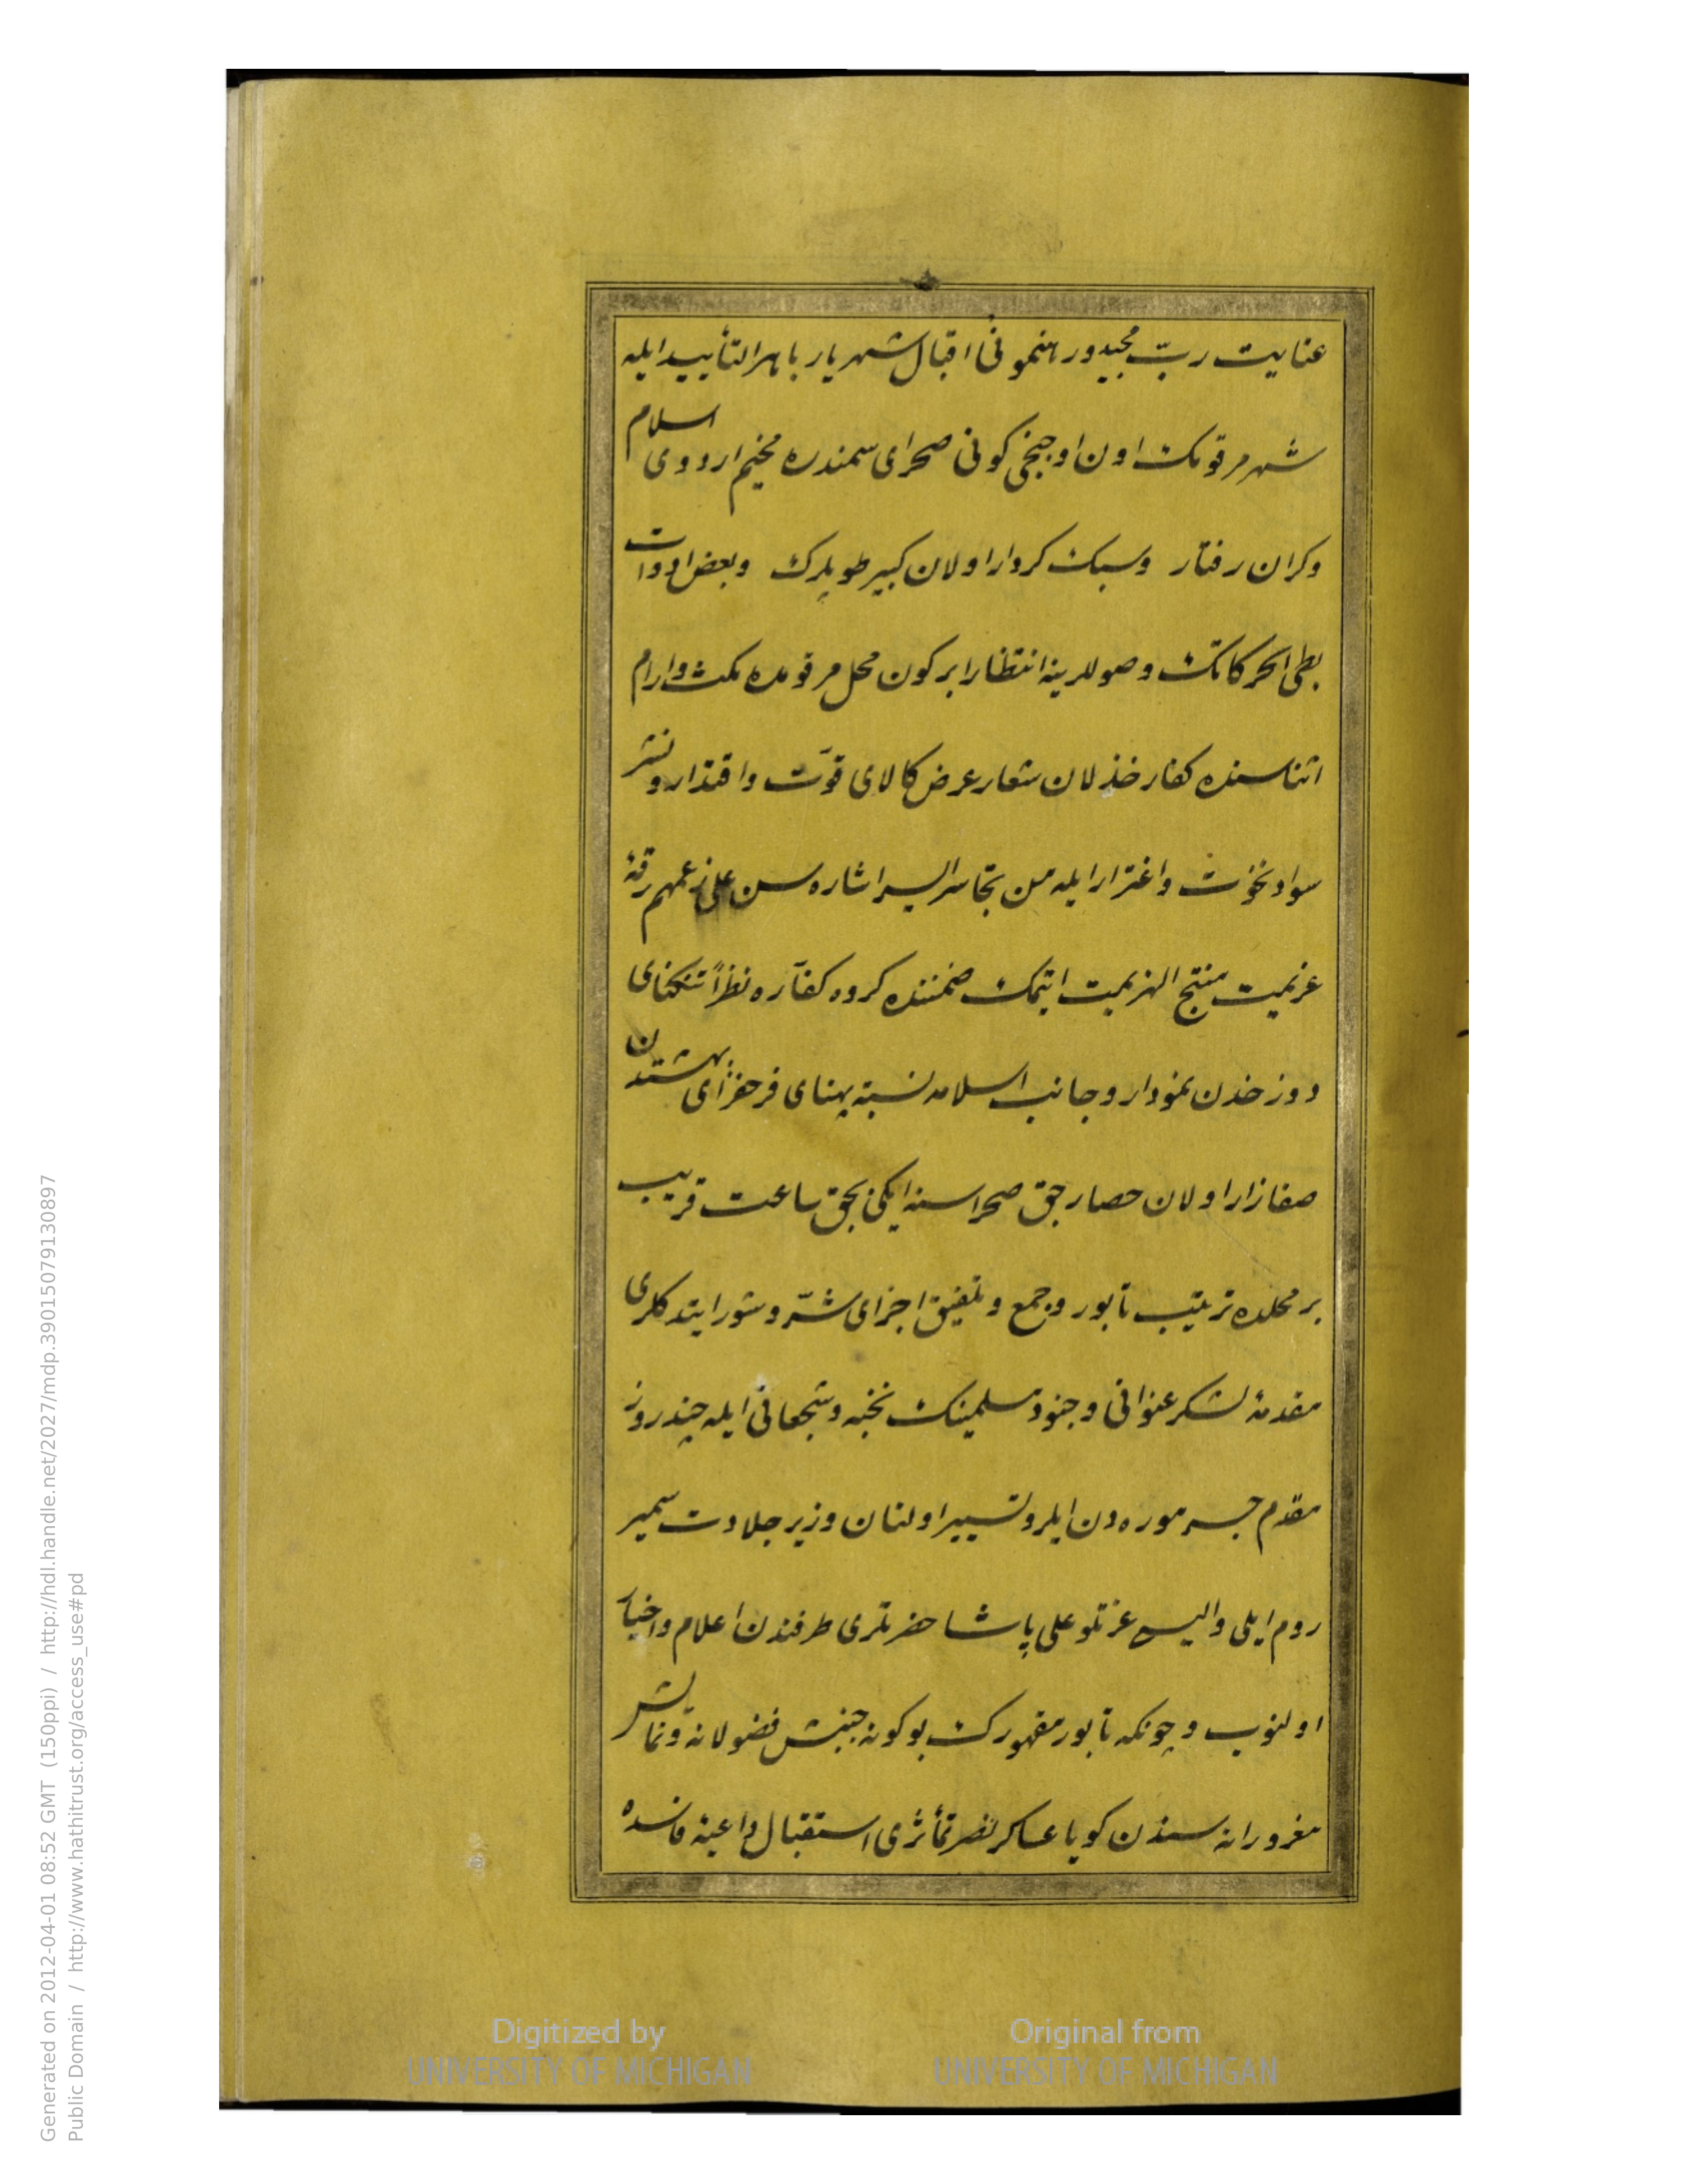 عنایت ربّ مجید و رهنمونئ اقبال شهریار باهر التأیید ایله
شهر مرقومك اون اوچنجی كونی صحرای سمندره مخیم اردوی اسلام
وكران رفتار وسبك كردار اولان كبیر طوپلرك وبعض ادوات
بطی الحركاتك وصوللرینه انتظارا بر كون محل مرقومده مكث وارام
اثناسنده كفار خذلان شعار عرض كالای قوّت واقتدار ونشر
سواد نخوت واغترار ایله من تجاسر السیر اشاره سن علی زعمهم رقهٔ
عزیمت منتج الهزیمت ایتمك ضمننده كروه كفّاره نظراً تنكنای
دوزخدن نمودار وجانب اسلامه نسبته پهنای فرحفزای بهشتدن
صفازار اولان حصارجق صحراسنه ایكی بچق ساعت قریب
بر محلده ترتیب تابور وجمع وتلفیق اجزای شرّ وشور ایتدكلری
مقدمهٔ لشكر عنوانی وجنود مسلمینك نخبه وشجعانی ایله چند روز
مقدم جسر موره دن ایلرو تسییر اولنان وزیر جلادت سمیر
روم ایلی والیسی عزتلو علی پاشا حضرتلری طرفندن اعلام واخبار
اولنوب وچونكه تابور مقهورك بو كونه جنبش فضولانه ونمایش
مغرورانه سندن كویا عساكر نصر تمأثری استقبال داعیهٔ فاسده